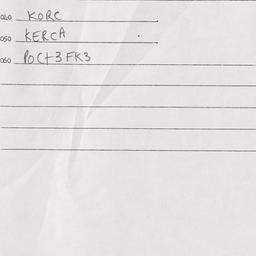 040 KORC
050 KERCA
060 POCt3FK3